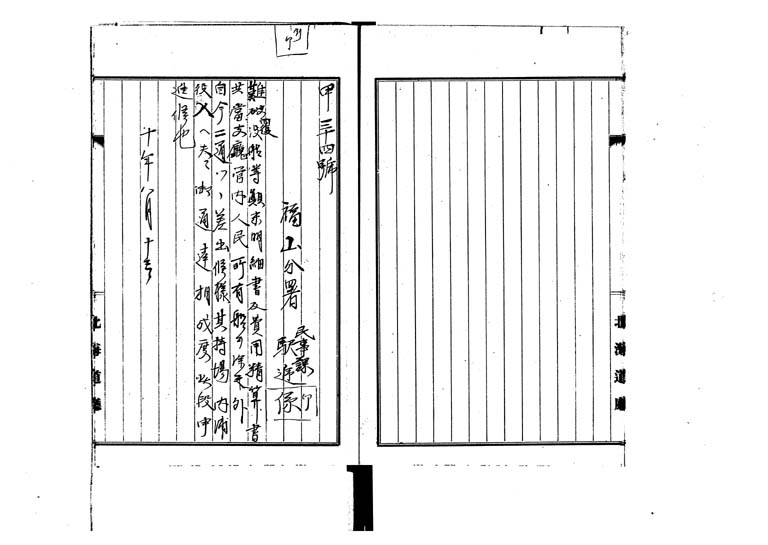 甲三十四號
福山分署
民事課
駅逓係
難破没船等顛末明細書及費用精算書
共當支廳管内人民所有船
自今二通ツヽ差出候様其持場内浦
役人ヘ夫々御通達相成度此段申
進候也
十年八月十
北海道廳
北海道廳